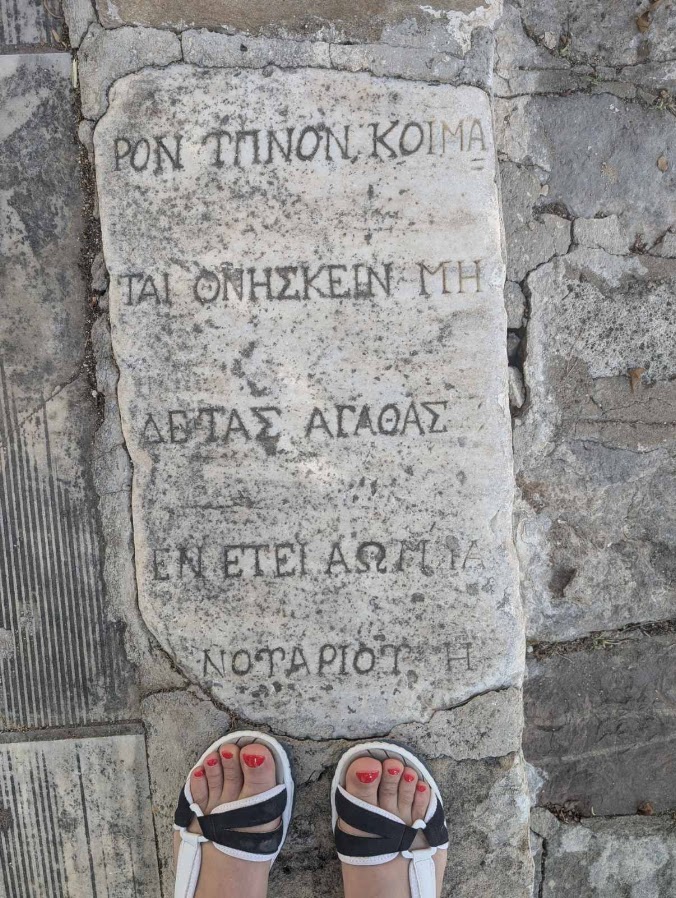 ΡΟΝ ΤΠΝΟΝ, ΚΟΙΜΑ
ΤΑΙ ΘΝΗΣΚΕΙΝ ΜΗ
ΔΕ ΤΑΣ ΑΓΑΘΑΣ
ΕΝ ΕΤΕΙ
ΝΟΤΑΡΙΟΤ Η